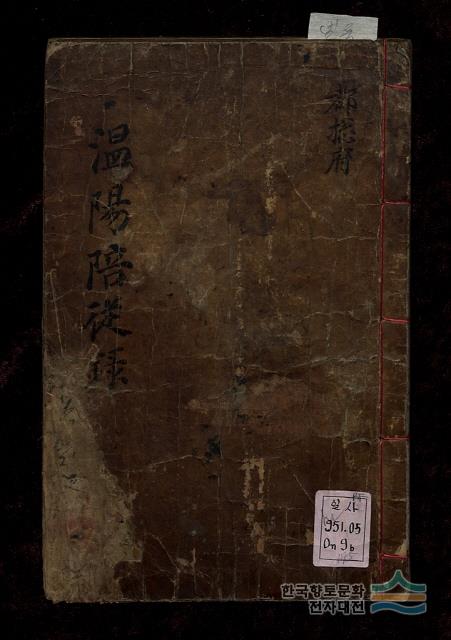 溫陽陪從錄
都摠府
실사
951.05
On9b
한국향토문화
전자대전